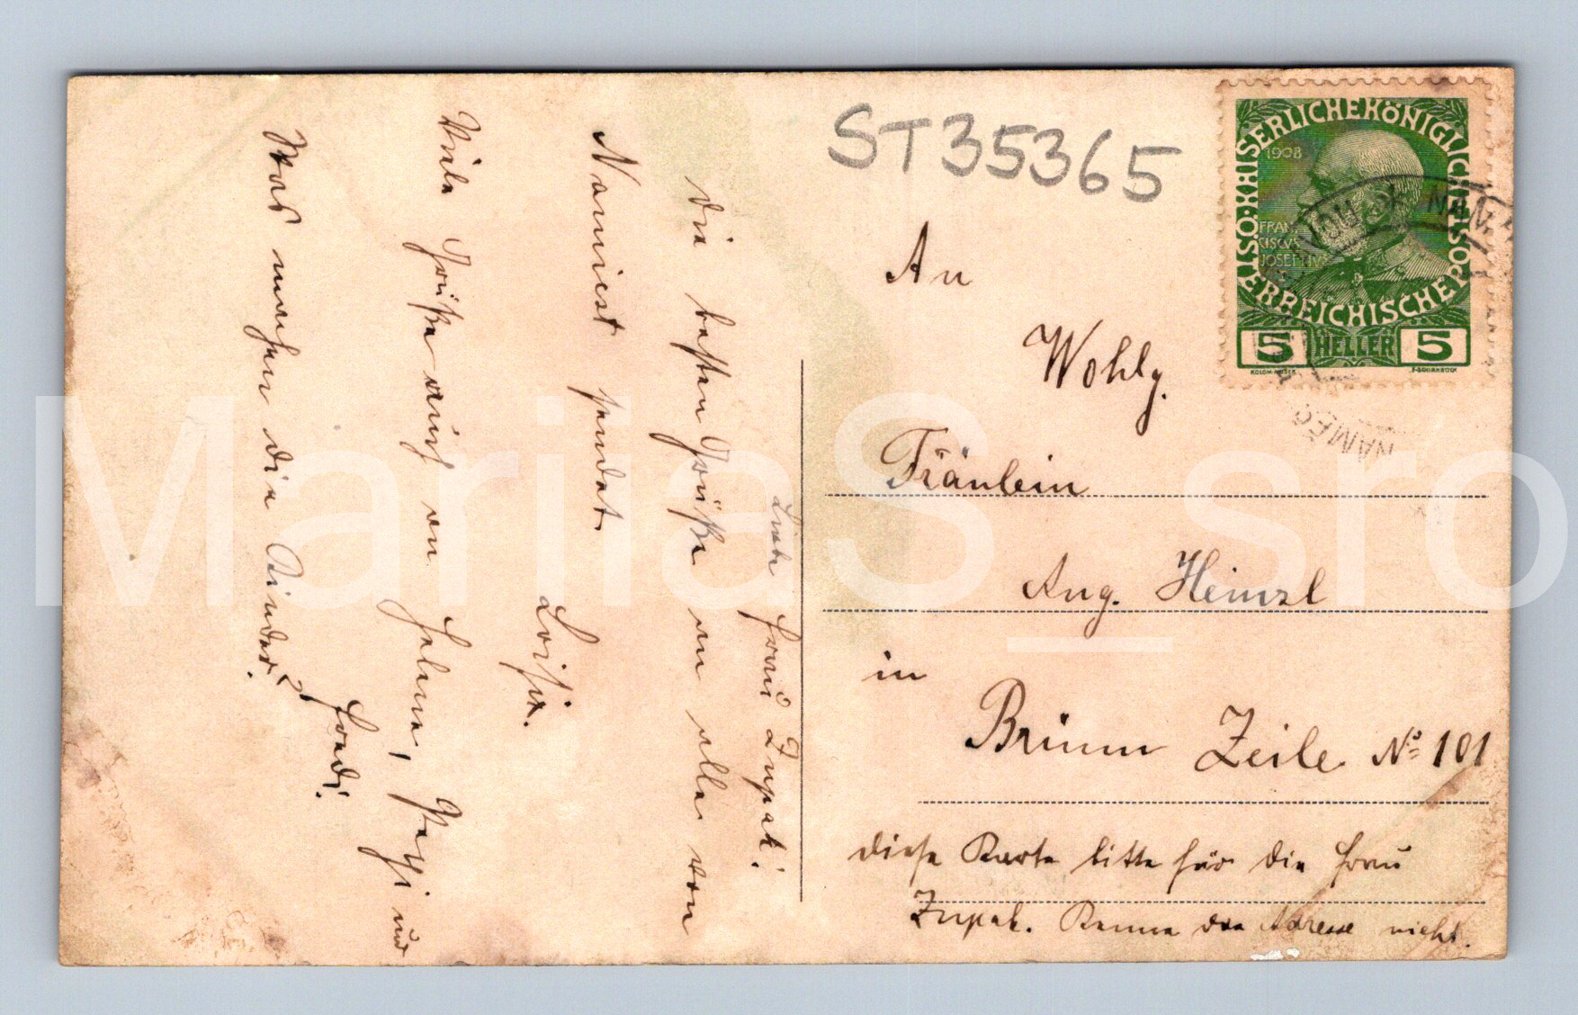 ST35365
KAISERLICHE KÖNIGLICHE
ÖSTERREICHISCHE POST
1908
FRAN
CISCVS
JOSEPHVS
5 HELLER 5
NAMĚŠ
An
Wohlg.
Fräulein
Aug. Heinzl
in
Brünn Zeile No 101
diese Karte bitte für die Frau
Zupak. Kenne die Adresse nicht.
Liebe Frau Zupak!
Die besten Grüße an alle von
Namiest sendet
Loisi
Viele Grüße auch an Helene, und
Fredi.
Was machen die Kinder?
MariiaS_sro